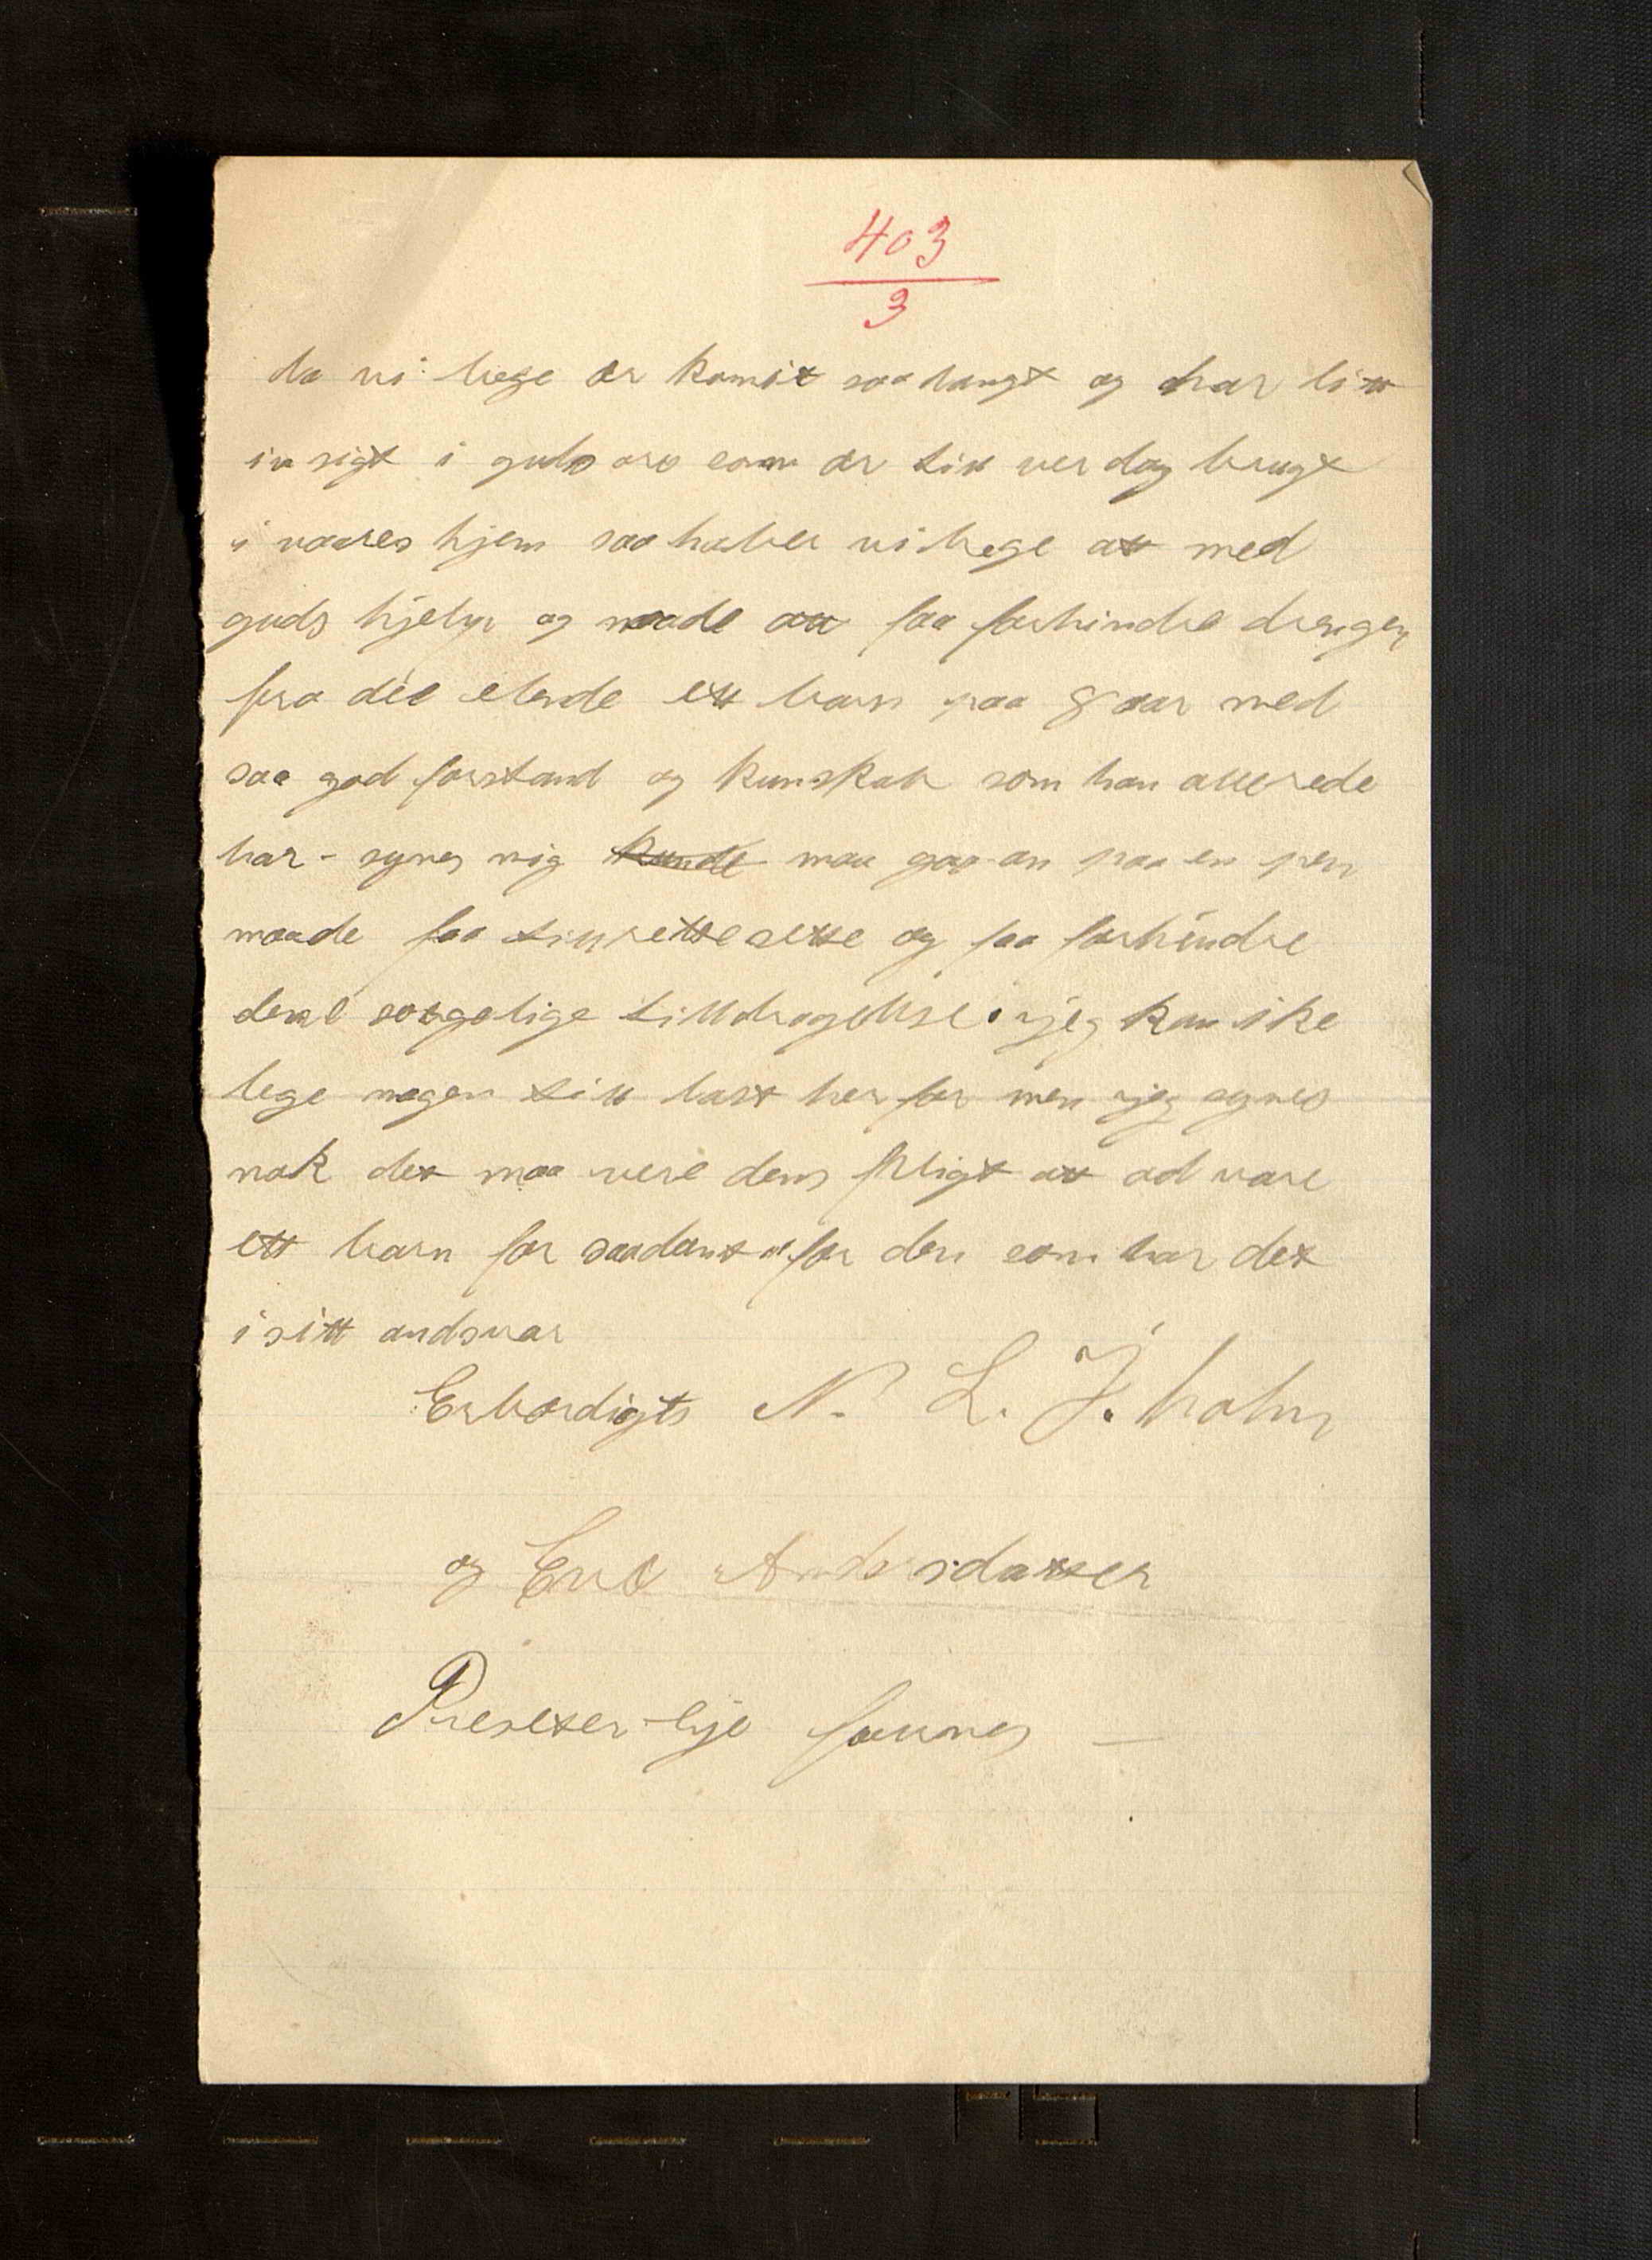 403
3
da vi bege er komit saa langt og har litt
insigt i guds ord som er till verdag brugt
i vaares hjem saa haber vi bege att med
guds hjelp og naade att faa forhindre drengen
fra det elende ett barn paa 8 aar med
saa god forstand og kunskab som han allerede
har - synes mig kunde maa gaa an paa en pen
maade faa till rette sette og faa forhindre
dene sorgelige tilldragelse. jeg kan ike
lege nogen till last her for men jeg synes
nok det maa vere dens pligt att advare
ett barn for saadant for den som har det
i sitt andsvar
Erbørdigts N. L. J. holm
og Eva Andersdatter
Prestter-lije